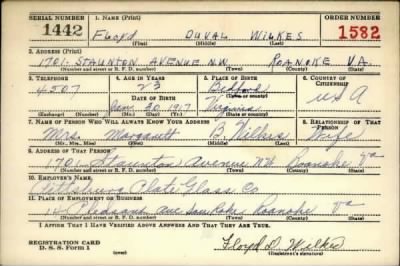 SERIAL NUMBER 1. NAME (Print) ORDER NUMBER
1442 Floyd DUVAL WILKES 1582
(First) (Middle) (Last)
2. ADDRESS (Print)
1701- STAUNTON AVENUE NW ROANOKE VA.
(Number and street or R. F. D. number) (Town) (County) (State)
3. TELEPHONE 4. AGE IN YEARS 5. PLACE OF BIRTH 6. COUNTRY OF CITIZENSHIP
4507 23 Bedford
DATE OF BIRTH (Town or county) USA
Jan. 20 1917 Virginia
(Exchange) (Number) (Mo.) (Day) (Yr.) (State or country)
7. NAME OF PERSON WHO WILL ALWAYS KNOW YOUR ADDRESS 8. RELATIONSHIP OF THAT PERSON
Mrs. Margarett B. Wilkes Wife
(Mr., Mrs., Miss) (First) (Middle) (Last)
9. ADDRESS OF THAT PERSON
1701 Staunton Avenue NW Roanoke Va
(Number and street or R. F. D. number) (Town) (County) (State)
10. EMPLOYER'S NAME
Pittsburg Plate Glass Co
11. PLACE OF EMPLOYMENT OR BUSINESS
Ave Roanoke Va
(Number and street or R. F. D. number) (Town) (County) (State)
I AFFIRM THAT I HAVE VERIFIED ABOVE ANSWERS AND THAT THEY ARE TRUE.
REGISTRATION CARD
D. S. S. Form 1 (over) Floyd D. Wilkes
(Registrant's signature)